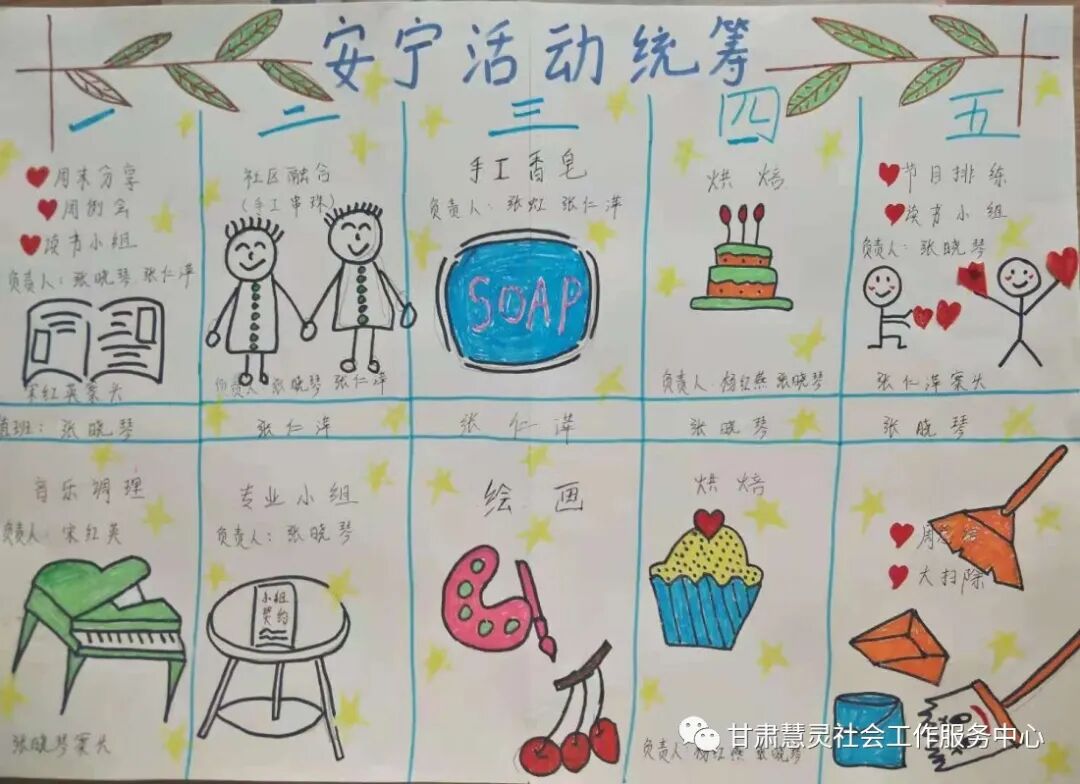 安宁活动统筹
一 二 三 四 五
周末分享
周例会
读书小组
负责人：张晓琴 张仁萍
宋红英案头
社区融合
（手工串珠）
负责人 张晓琴 张仁萍
手工香皂
负责人：张虹 张仁萍
SOAP
烘焙
负责人：杨红燕 张晓琴
节目排练
读书小组
负责人：张晓琴
张仁萍案头
值班：张晓琴
张仁萍
张仁萍
张晓琴
张晓琴
音乐调理
负责人：宋红英
张晓琴案头
专业小组
负责人：张晓琴
小组
契约
绘画
烘焙
负责人：杨红燕 张晓琴
周总结
大扫除
甘肃慧灵社会工作服务中心